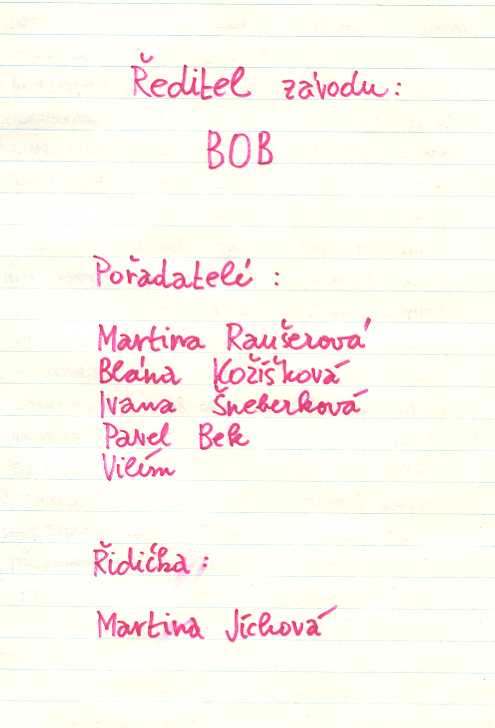 Ředitel závodu:
BOB
Pořadatelé :
Martina Raušerová
Blána Kožíšková
Ivana Šneberková
Pavel Bek
Vilém
Řidička :
Martina Jíchová